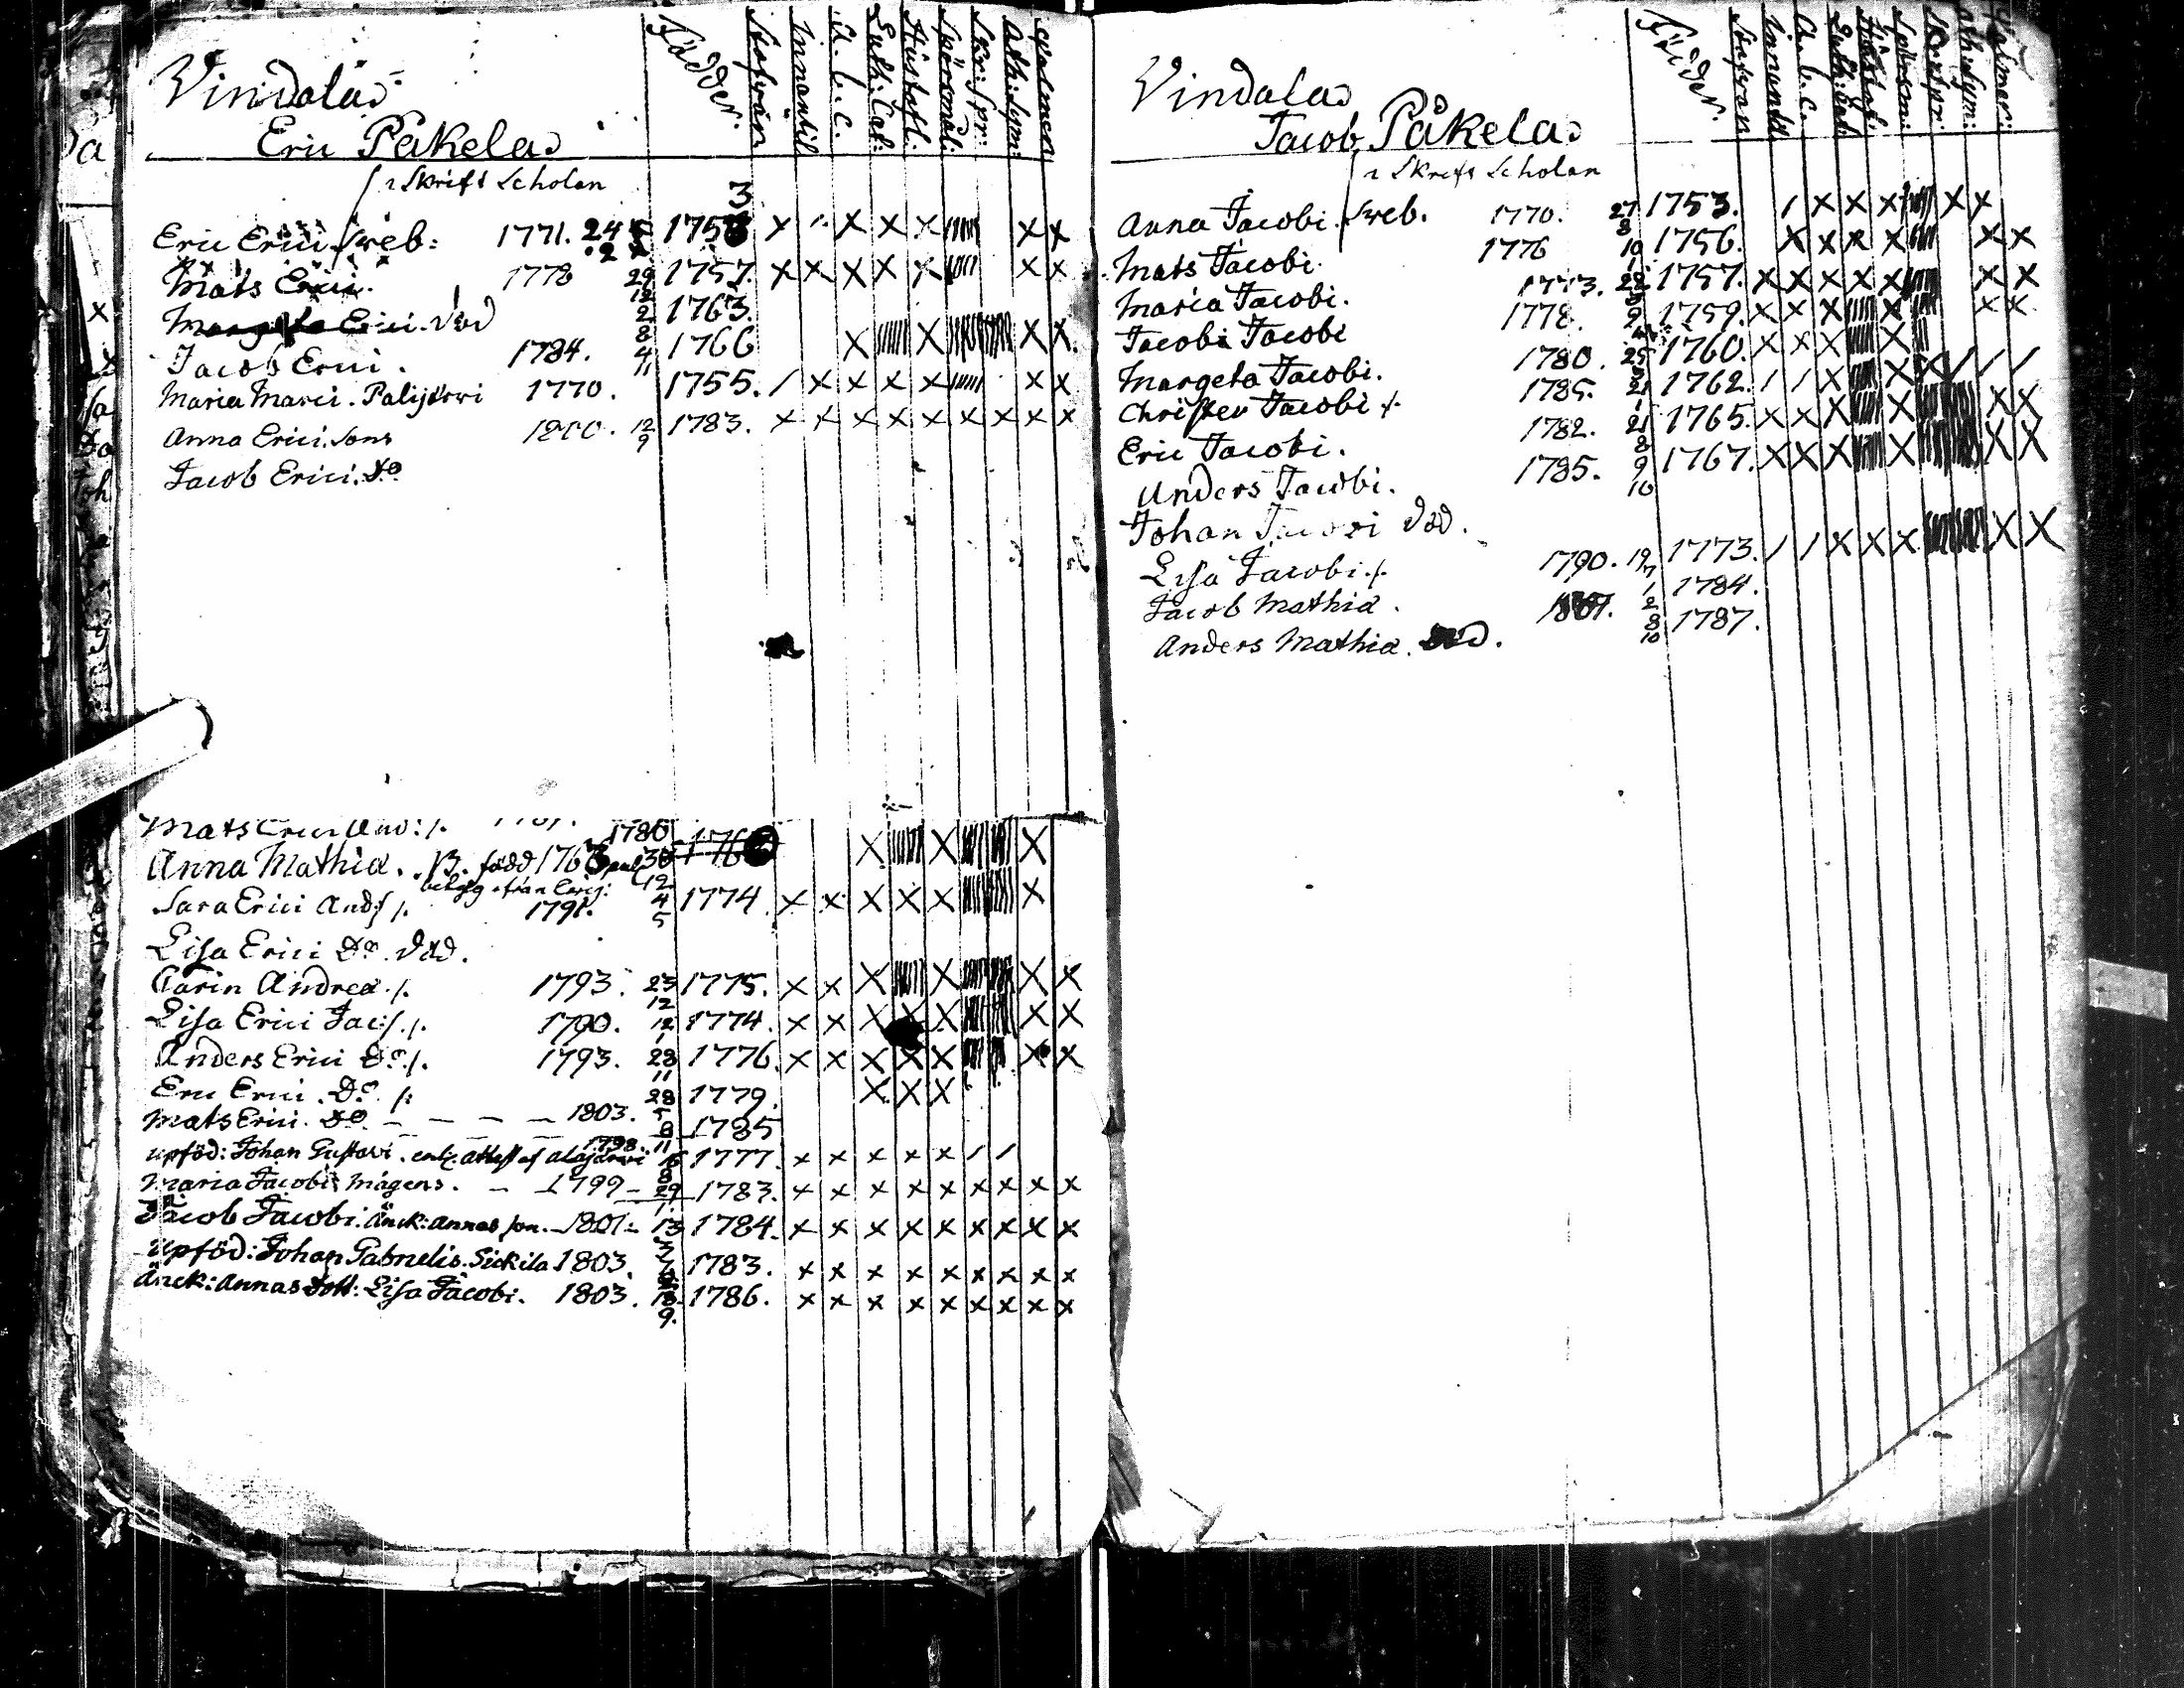 Vindala
Eric Påkela
Födder.
Stafvan
Innantil
A. b. c.
Luth: Cat:
Hustafl.
Spörsmål:
Skr: Spr:
Ath: Sym:
Psalmen
i Skrift Scholan
Eric Erici Sveb: 1771. 24 1753
Mats Erici. 1778 29/12 1757.
Margeta Erici. död 2/8 1763.
Jacob Erici. 1784. 4/11 1766
Maria Marci. Palijärvi 1770. 1755.
Anna Erici. Sons 1800. 12/9 1783.
Jacob Erici. Do
Mats Erici And: /.
Anna Mathiæ. född 1763 1786 30/12
Sara Erici And: /. 1791. 4/5 1774
Lisa Erici Do. död.
Carin Andreæ. /. 1793. 23/12 1775.
Lisa Erici Jac: /. 1790. 12/1 1774.
Anders Erici Do. /. 1793. 28/11 1776.
Eric Erici. Do /: 28/5 1779.
Mats Erici. Do. — — — 1803. 8/11 1785
upföd: Johan Gustavi. enl. attest af alajärvi 1798. 16/8 1777.
Maria Jacobi Mågens. — 1799 — 29/1 1783.
Jacob Jacobi. Änck: Annas son. — 1801 — 13/3 1784.
upföd: Johan Gabrielis. Sickila 1803. 1783.
Änck: Annas dott: Lisa Jacobi. 1803. 18/9. 1786.
Vindala
Jacob Påkela
Födder.
Stafvan
Innantil
A. b. c.
Luth: Cat:
Hustafl:
Spörsm:
Skr: Spr:
Ath: Sym:
Psalmer:
i Skrift Scholan
Anna Jacobi. Sveb. 1770. 27/8 1753.
Mats Jacobi 1776 10/1 1756.
Maria Jacobi. 1773. 1757.
Jacobi Jacobi 1778. 1759.
Margeta Jacobi. 1780. 25 1760.
Christer Jacobi /. 1785. 21/1 1762.
Eric Jacobi. 1782. 21/8 1765.
Anders Jacobi. 1785. 9/10 1767.
Johan Jacobi död.
Lisa Jacobi /. 1790. 19/7 1773.
Jacob Mathiæ. 1801. 1/2 1784.
Anders Mathiæ. död. 8/10 1787.